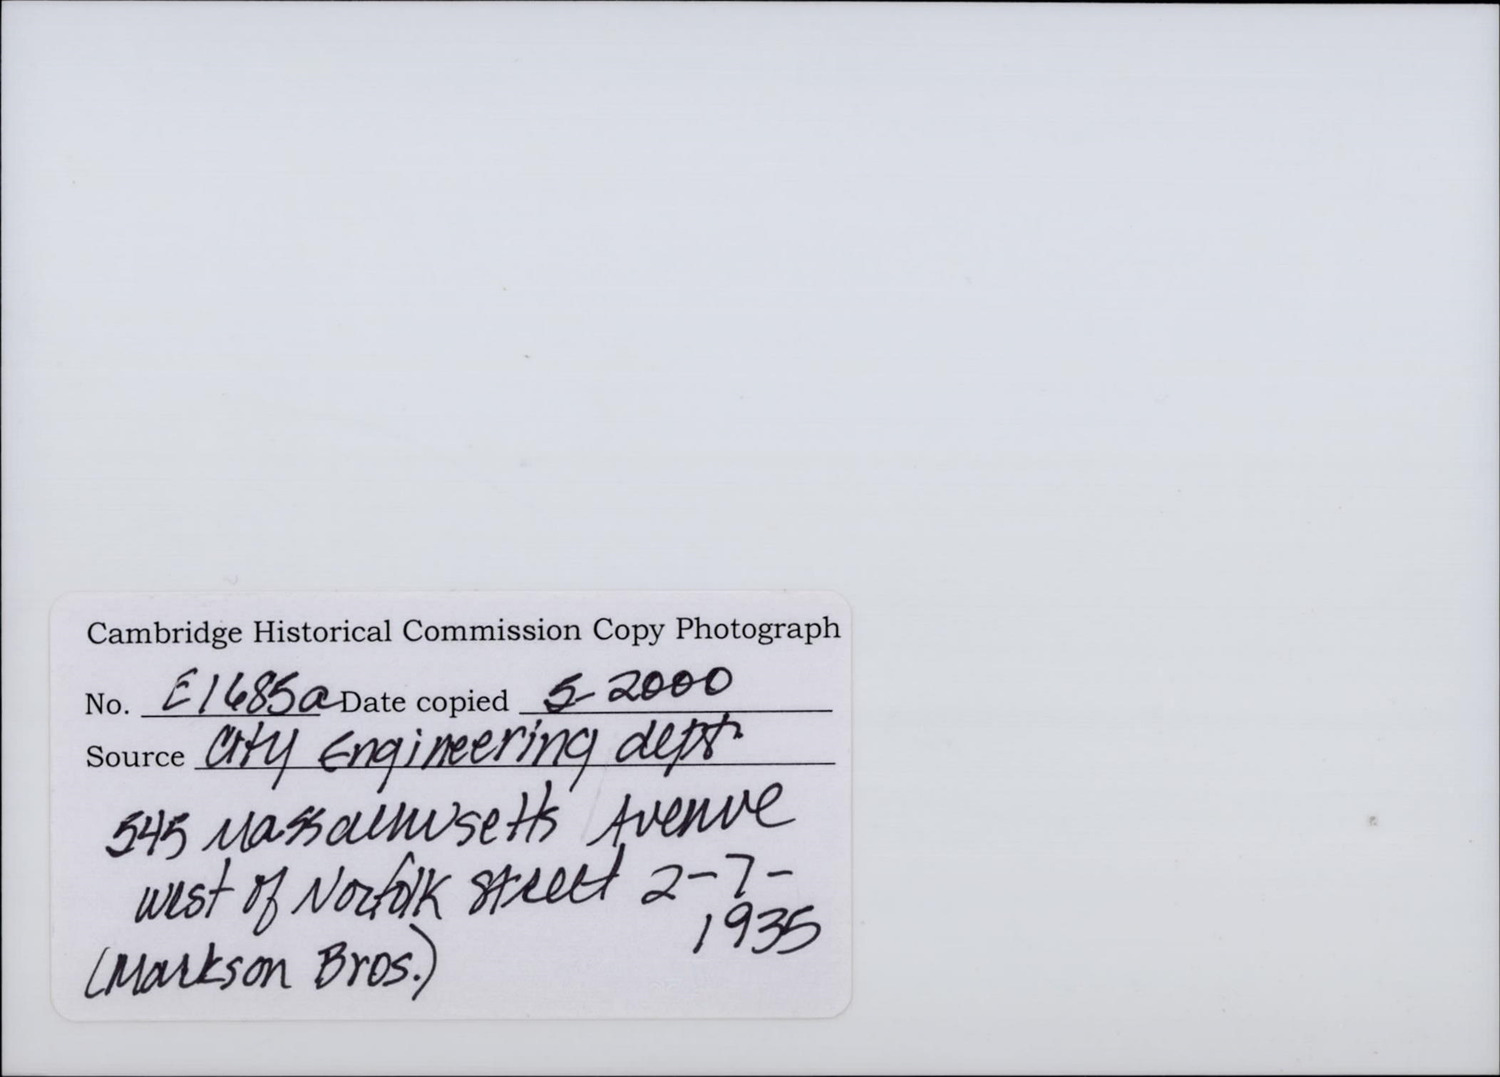 Cambridge Historical Commission Copy Photograph
No. E1685a Date copied 5-2000
Source City Engineering dept.
545 Massachusetts Avenue
west of Norfolk Street 2-7-
1935
(Markson Bros.)